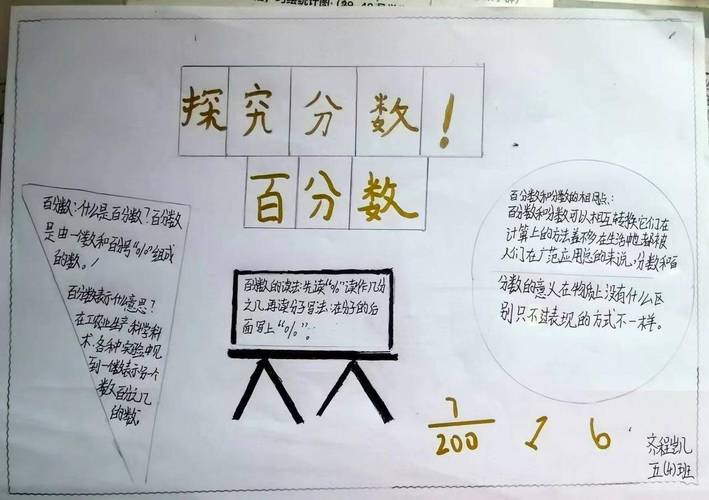 探究分数！
百分数
百分数:什么是百分数?百分数
是由一个数和百分号"%"组成
的数。
百分数表示什么意思?
在工农业生产,科学科
术、各种实验中
到一个数表示另一个
数百分之几
的数。
百分数的读法:先读"%"读作几分
之几,再读分子写法:在分子的后
面写上"%"。
百分数和分数的相同点:
百分数和分数可以相互转换它们在
计算上的方法差不多在生活中也都被
人们在广范应用总的来说,分数和百
分数的意义在物质上没有什么区
别只不过表现的方式不一样。
7
200
1 6
齐程凯
五(4)班